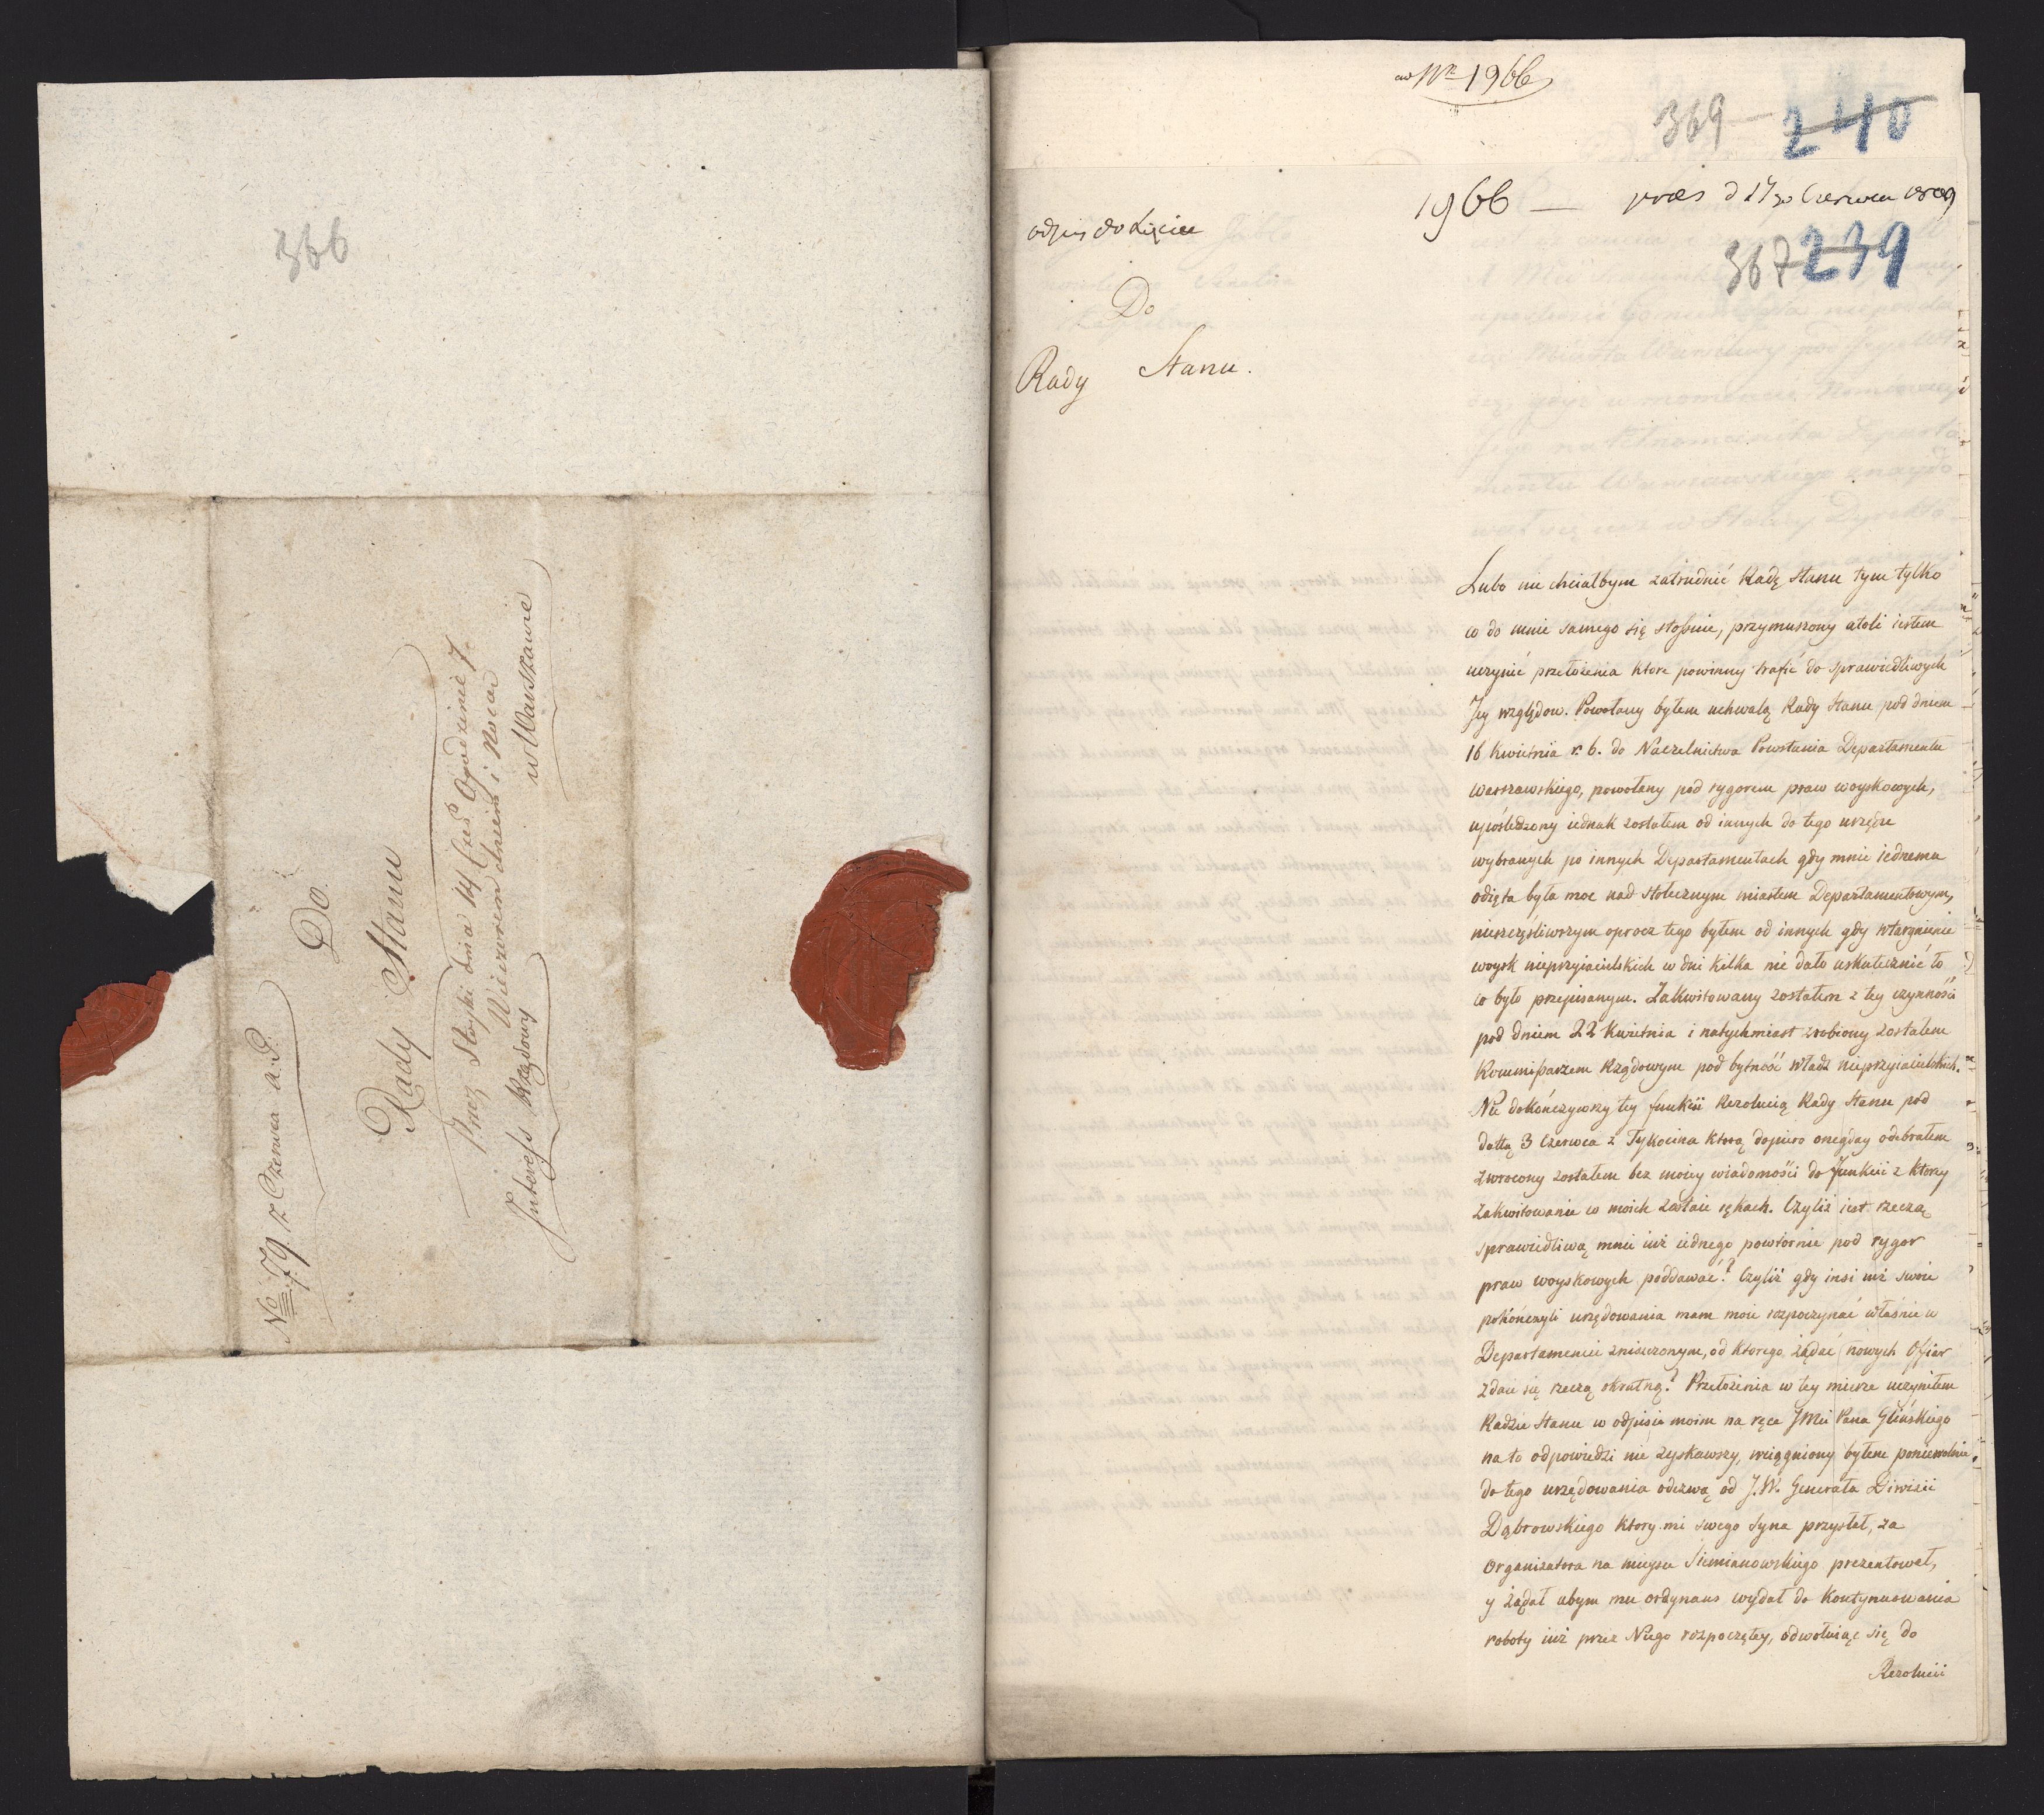 366
No 79 12 Czerwca a. C.
Do
Rady Stanu
Przez Stojki dnia 14 Czer. o godzinie 7
Wieczorem dniem i Nocą
Interess Rządowy
w Warszawie
ad Nr 1966
369 — 240
odpis do Księcia
1966 — præs d 17go Czerwca 1809
367 239
Do
Rady Stanu.
Lubo nie chciałbym zatrudnić Radę Stanu tym tylko
co do mnie samego się stosuie, przymuszony atoli iestem
uczynić przełożenia ktore powinny trafić do sprawiedliwych
Jey względow. Powołany byłem uchwałą Rady Stanu pod dniem
16 Kwietnia r. b. do Naczelnictwa Powstania Departamentu
Warszawskiego, powołany pod rygorem praw woyskowych,
upośledzony iednak zostałem od innych do tego urzędu
wybranych po innych Departamentach gdy mnie iednemu
odięta była moc nad stołecznym miastem Departamentowym,
nieszczęśliwszym oprocz tego byłem od innych gdy wtargnienie
woysk nieprzyiacielskich w dni kilka nie dało uskutecznić to
co było przepisanym. Zakwitowany zostałem z tey czynności
pod dniem 22 Kwietnia i natychmiast zrobiony zostałem
Kommissarzem Rządowym pod bytność władz nieprzyiacielskich.
Nie dokończywszy tey funkcii Rezolucią Rady Stanu pod
dattą 3 Czerwca z Tykocina ktorą dopiero onegday odebrałem
zwrocony zostałem bez moiey wiadomości do funkcii z ktorey
zakwitowanie w moich zostaie rękach. Czyliż iest rzeczą
sprawiedliwą mnie iuż iednego powtornie pod rygor
praw woyskowych poddawać? Czyliż gdy insi iuż swoie
pokończyli urzędowania mam moie rozpoczynać właśnie w
Departamencie zniszczonym, od ktorego żądać nowych Ofiar
zdaie się rzeczą okrutną? Przełożenia w tey mierze uczyniłem
Radzie Stanu w odpisie moim na ręce JMci Pana Glińskiego
na to odpowiedzi nie zyskawszy, wciągniony byłem poniewolnie
do tego urzędowania odezwą od J.W. Generała Diwizii
Dąbrowskiego ktory mi swego syna przysłał, za
Organizatora na mieysce Siemianowskiego prezentował,
y żądał abym mu ordynans wydał do kontynuowania
roboty iuż przez Niego rozpoczętey, odwołuiąc się do
Rezolucii